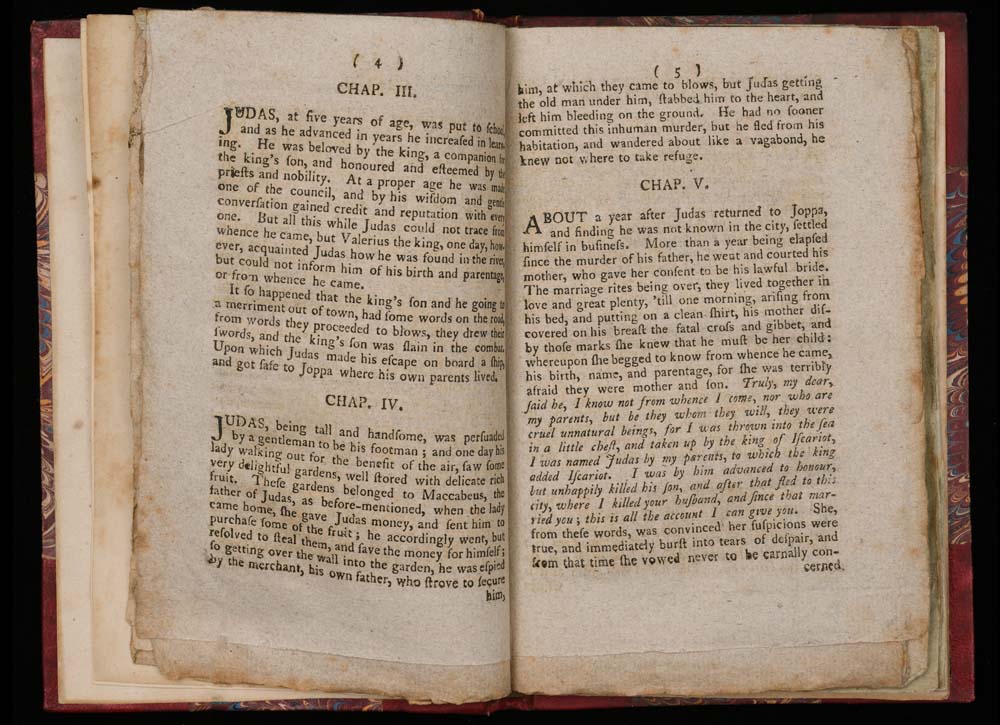 ( 4 )
CHAP. III.
JUDAS, at five years of age, was put to ſchool,
and as he advanced in years he increaſed in learn-
ing. He was beloved by the king, a companion for
the king's ſon, and honoured and eſteemed by the
prieſts and nobility. At a proper age he was made
one of the council, and by his wiſdom and gentle
converſation gained credit and reputation with every
one. But all this while Judas could not trace from
whence he came, but Valerius the king, one day, how-
ever, acquainted Judas how he was found in the river,
but could not inform him of his birth and parentage,
or from whence he came.
It ſo happened that the king's ſon and he going to
a merriment out of town, had ſome words on the road,
from words they proceeded to blows, they drew their
ſwords, and the king's ſon was ſlain in the combat.
Upon which Judas made his eſcape on board a ſhip,
and got ſafe to Joppa where his own parents lived.
CHAP. IV.
JUDAS, being tall and handſome, was perſuaded
by a gentleman to be his footman ; and one day his
lady walking out for the benefit of the air, ſaw ſome
very delightful gardens, well ſtored with delicate rich
fruit. Theſe gardens belonged to Maccabeus, the
father of Judas, as before-mentioned, when the lady
came home, ſhe gave Judas money, and ſent him to
purchaſe ſome of the fruit ; he accordingly went, but
reſolved to ſteal them, and ſave the money for himſelf ;
ſo getting over the wall into the garden, he was eſpied
by the merchant, his own father, who ſtrove to ſecure
him,
( 5 )
him, at which they came to blows, but Judas getting
the old man under him, ſtabbed him to the heart, and
left him bleeding on the ground. He had no ſooner
committed this inhuman murder, but he fled from his
habitation, and wandered about like a vagabond, he
knew not where to take refuge.
CHAP. V.
ABOUT a year after Judas returned to Joppa,
and finding he was not known in the city, ſettled
himſelf in buſineſs. More than a year being elapſed
ſince the murder of his father, he went and courted his
mother, who gave her conſent to be his lawful bride.
The marriage rites being over, they lived together in
love and great plenty, 'till one morning, ariſing from
his bed, and putting on a clean ſhirt, his mother diſ-
covered on his breaſt the fatal croſs and gibbet, and
by thoſe marks ſhe knew that he muſt be her child :
whereupon ſhe begged to know from whence he came,
his birth, name, and parentage, for ſhe was terribly
afraid they were mother and ſon. Truly, my dear,
ſaid he, I know not from whence I come, nor who are
my parents, but be they whom they will, they were
cruel unnatural beings, for I was thrown into the ſea
in a little cheſt, and taken up by the king of Iſcariot,
I was named Judas by my parents, to which the king
added Iſcariot. I was by him advanced to honour,
but unhappily killed his ſon, and after that fled to this
city, where I killed your huſband, and ſince that mar-
ried you ; this is all the account I can give you. She,
from theſe words, was convinced her ſuſpicions were
true, and immediately burſt into tears of deſpair, and
from that time ſhe vowed never to be carnally con-
cerned.